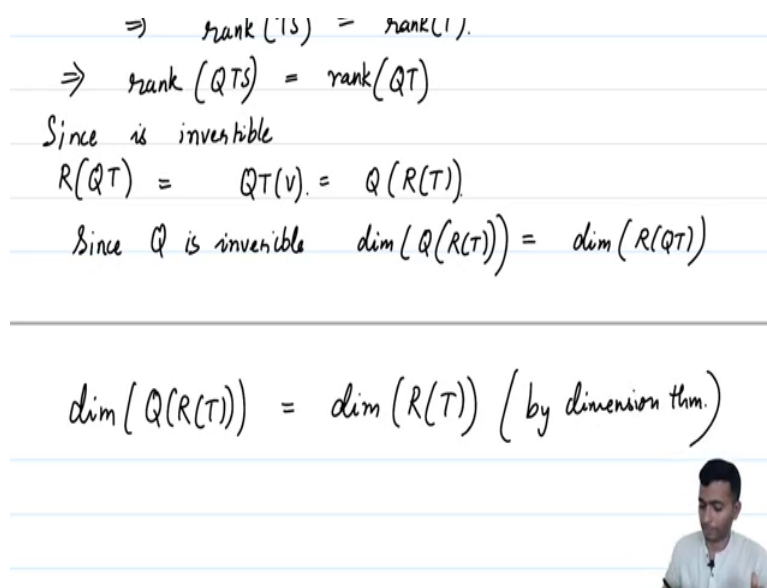 ⇒ rank (TS) = rank(T).
⇒ rank (QTS) = rank(QT)
Since is invertible
R(QT) = QT(V). = Q(R(T))
Since Q is inverible dim(Q(R(T))) = dim(R(QT))
dim(Q(R(T))) = dim(R(T)) (by dimension thm.)